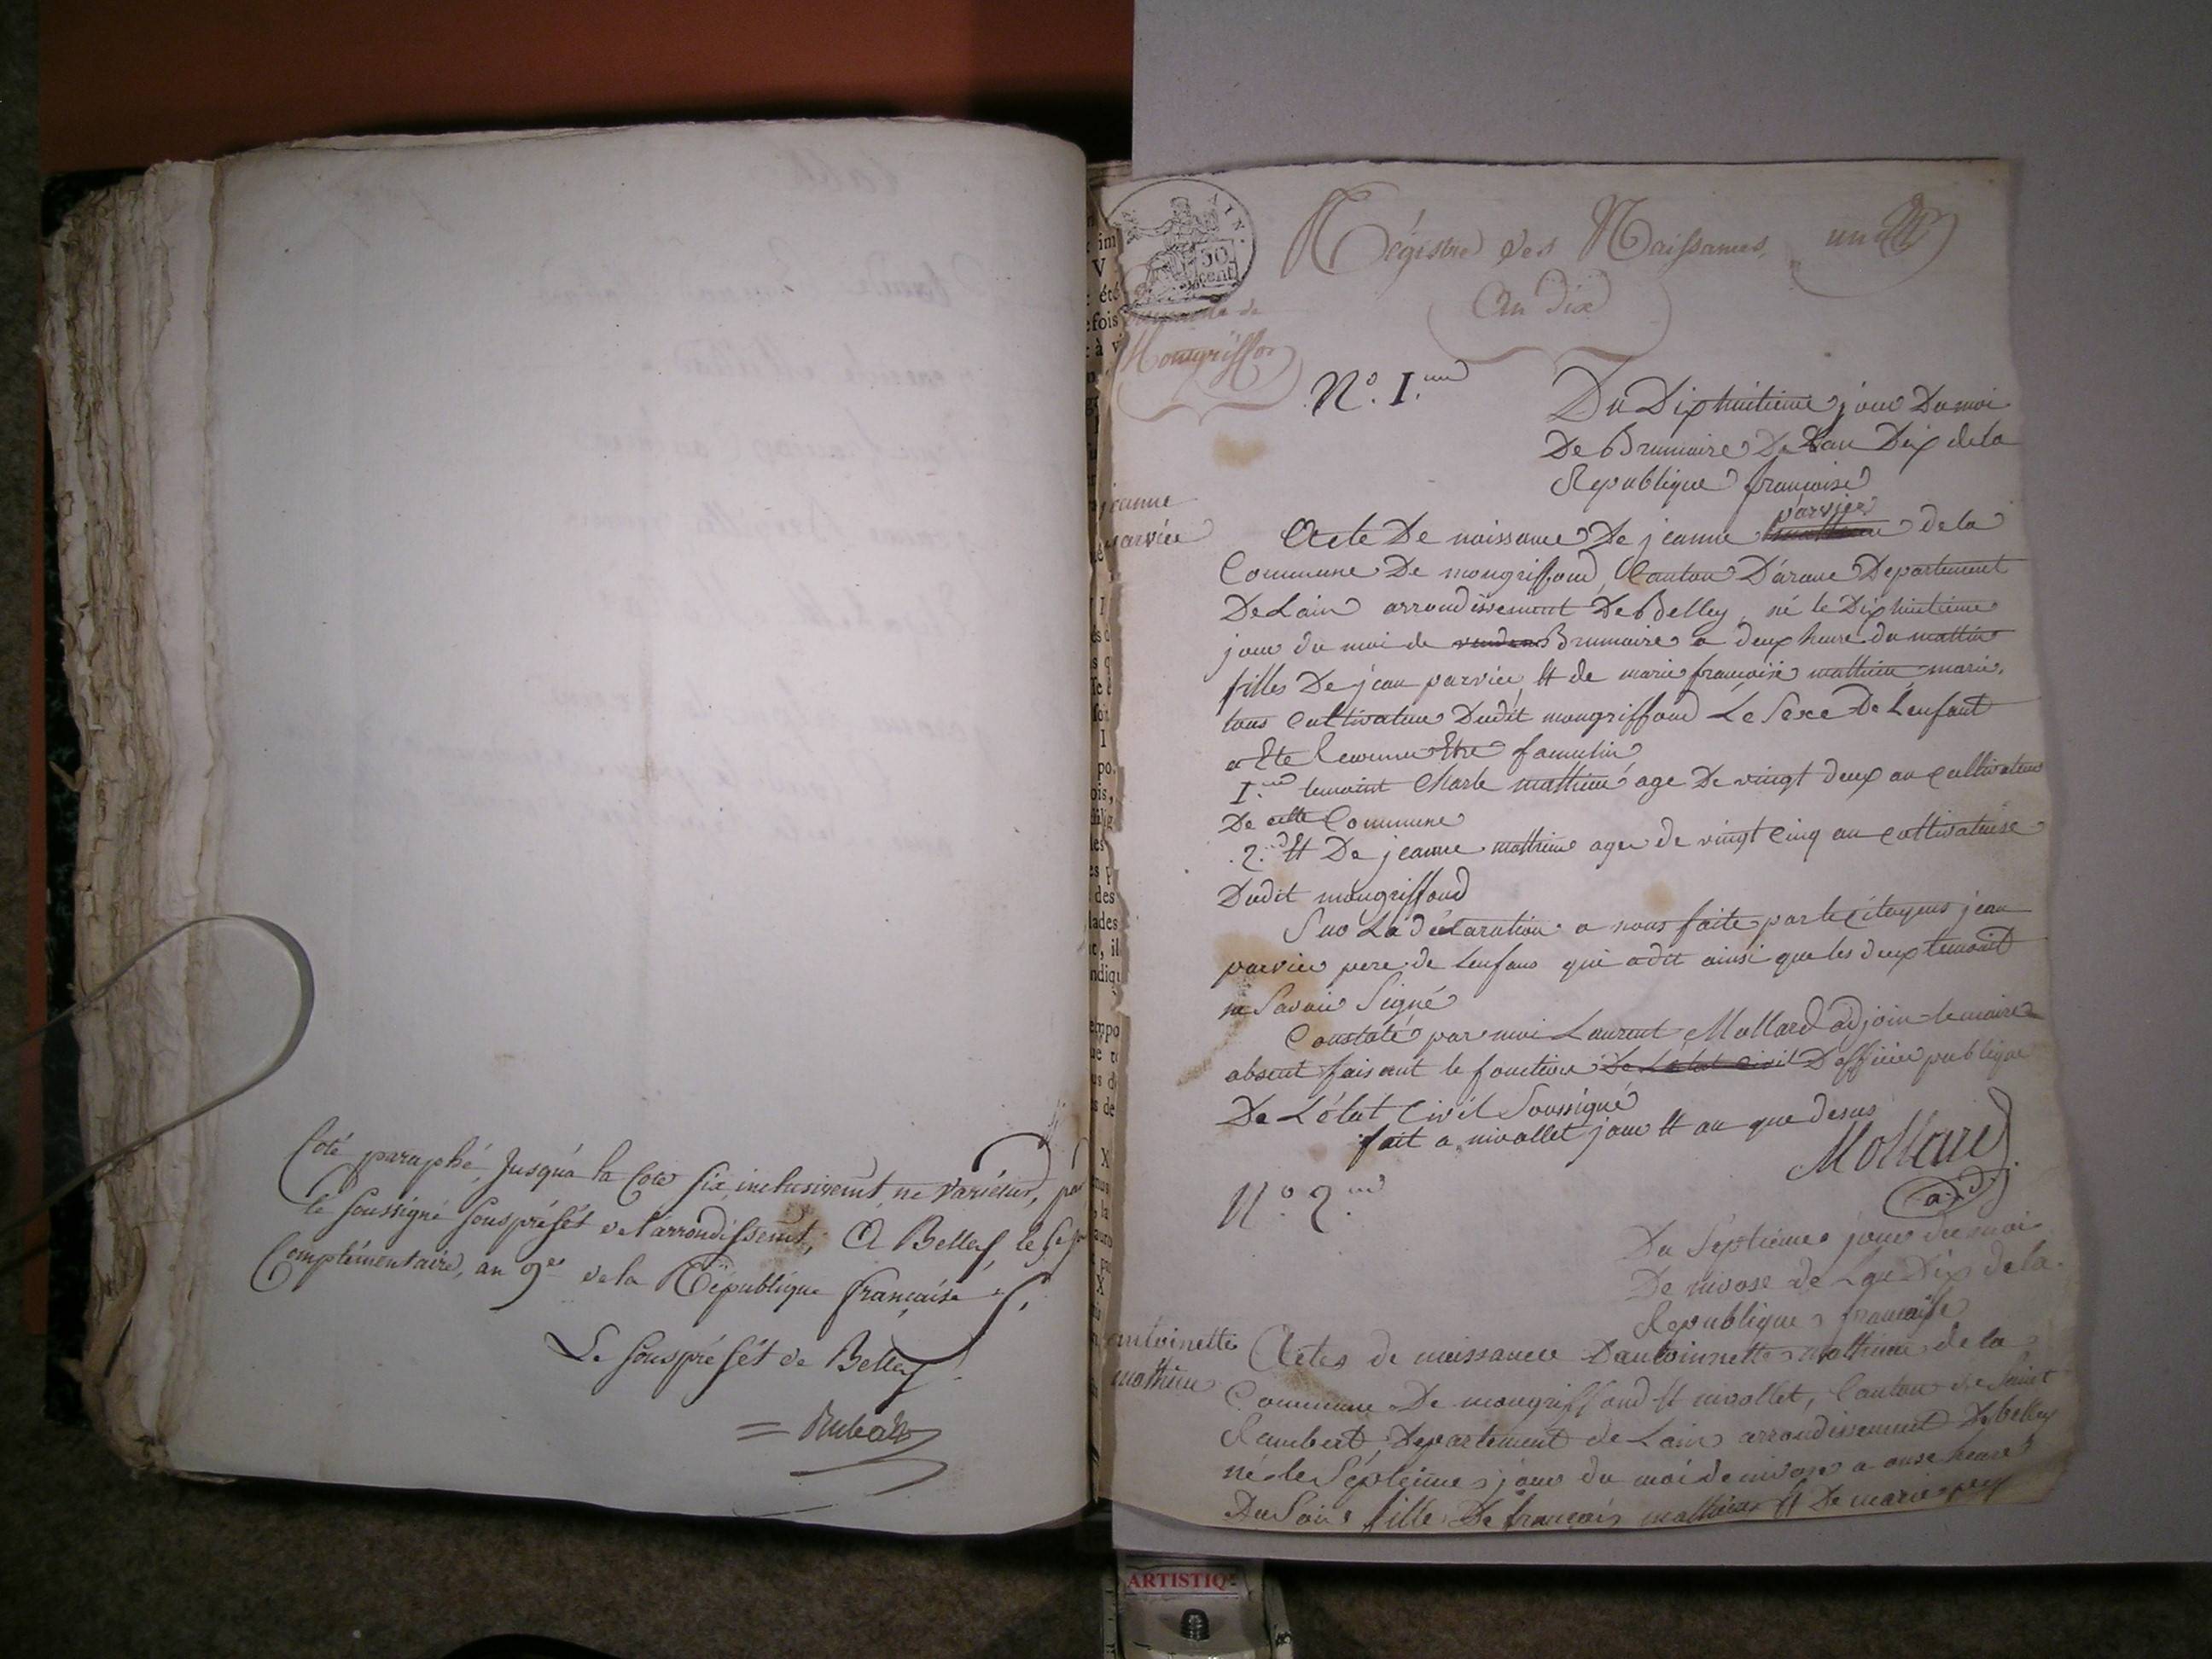 Coté paraphé, Jusqu'a la Cote six, inclusivemt, ne varietur, par
le soussigné souspréfét de l'arrondissemt, A Belley, le
Complémentaire, an 9e de la République française
Le souspréfét de Belley
Régistre des Naissances, un
An dix
de
Mongriffon
N.o I.
Du Dixhuitieme jour Du moi
De Brumaire De Lan Dix de la
Republique francoise
jeanne
parvier
Acte De naissance De jeanne parvier de la
Commune De mongriffond, Canton D'arane Departement
De Lain arrondissement De Belley, né le Dixhuitieme
jour du moi de Brumaire a deux heure du mattin
filles De jean parvier et de marie francoise mathieu marié,
tous Cultivateur Dudit mongriffond Le Sexe De Lenfant
a Ete Reconnu Etre famulin
I. temoint Charle mathieu age De vingt deux an cultivateur
De cette Commune
2. et De jeanne mathieu agee de vingt cinq an cultivatrise
Dudit mongriffond
Sur La déclaration a nous faite par le Citoyens jean
parvier pere de Lenfans qui a dit ainsi que les deux temoint
ne Savoir Signé
Constaté par moi Laurent Mollard adjoin le maire
absent faisent le fonction De Létat Civil D'officier publique
De L'état Civil Soussigné
fait a nivollet jour et an que desus
Mollard
adj.
N.o 2.
Du Septieme jour du moi
De nivose de Lan Dix de la
Republique francaise
antoinette
mathieu
Actes de naissance Dantoinnette mathieu de la
Commune De mongriffond et nivollet, Canton de Saint
Rambert, Departement de Lain arrondissement De belley
né le Séptieme jour du moi de nivose a onse heure
Du Soir fille De francois mathieu et De marie pey
ARTISTIQ